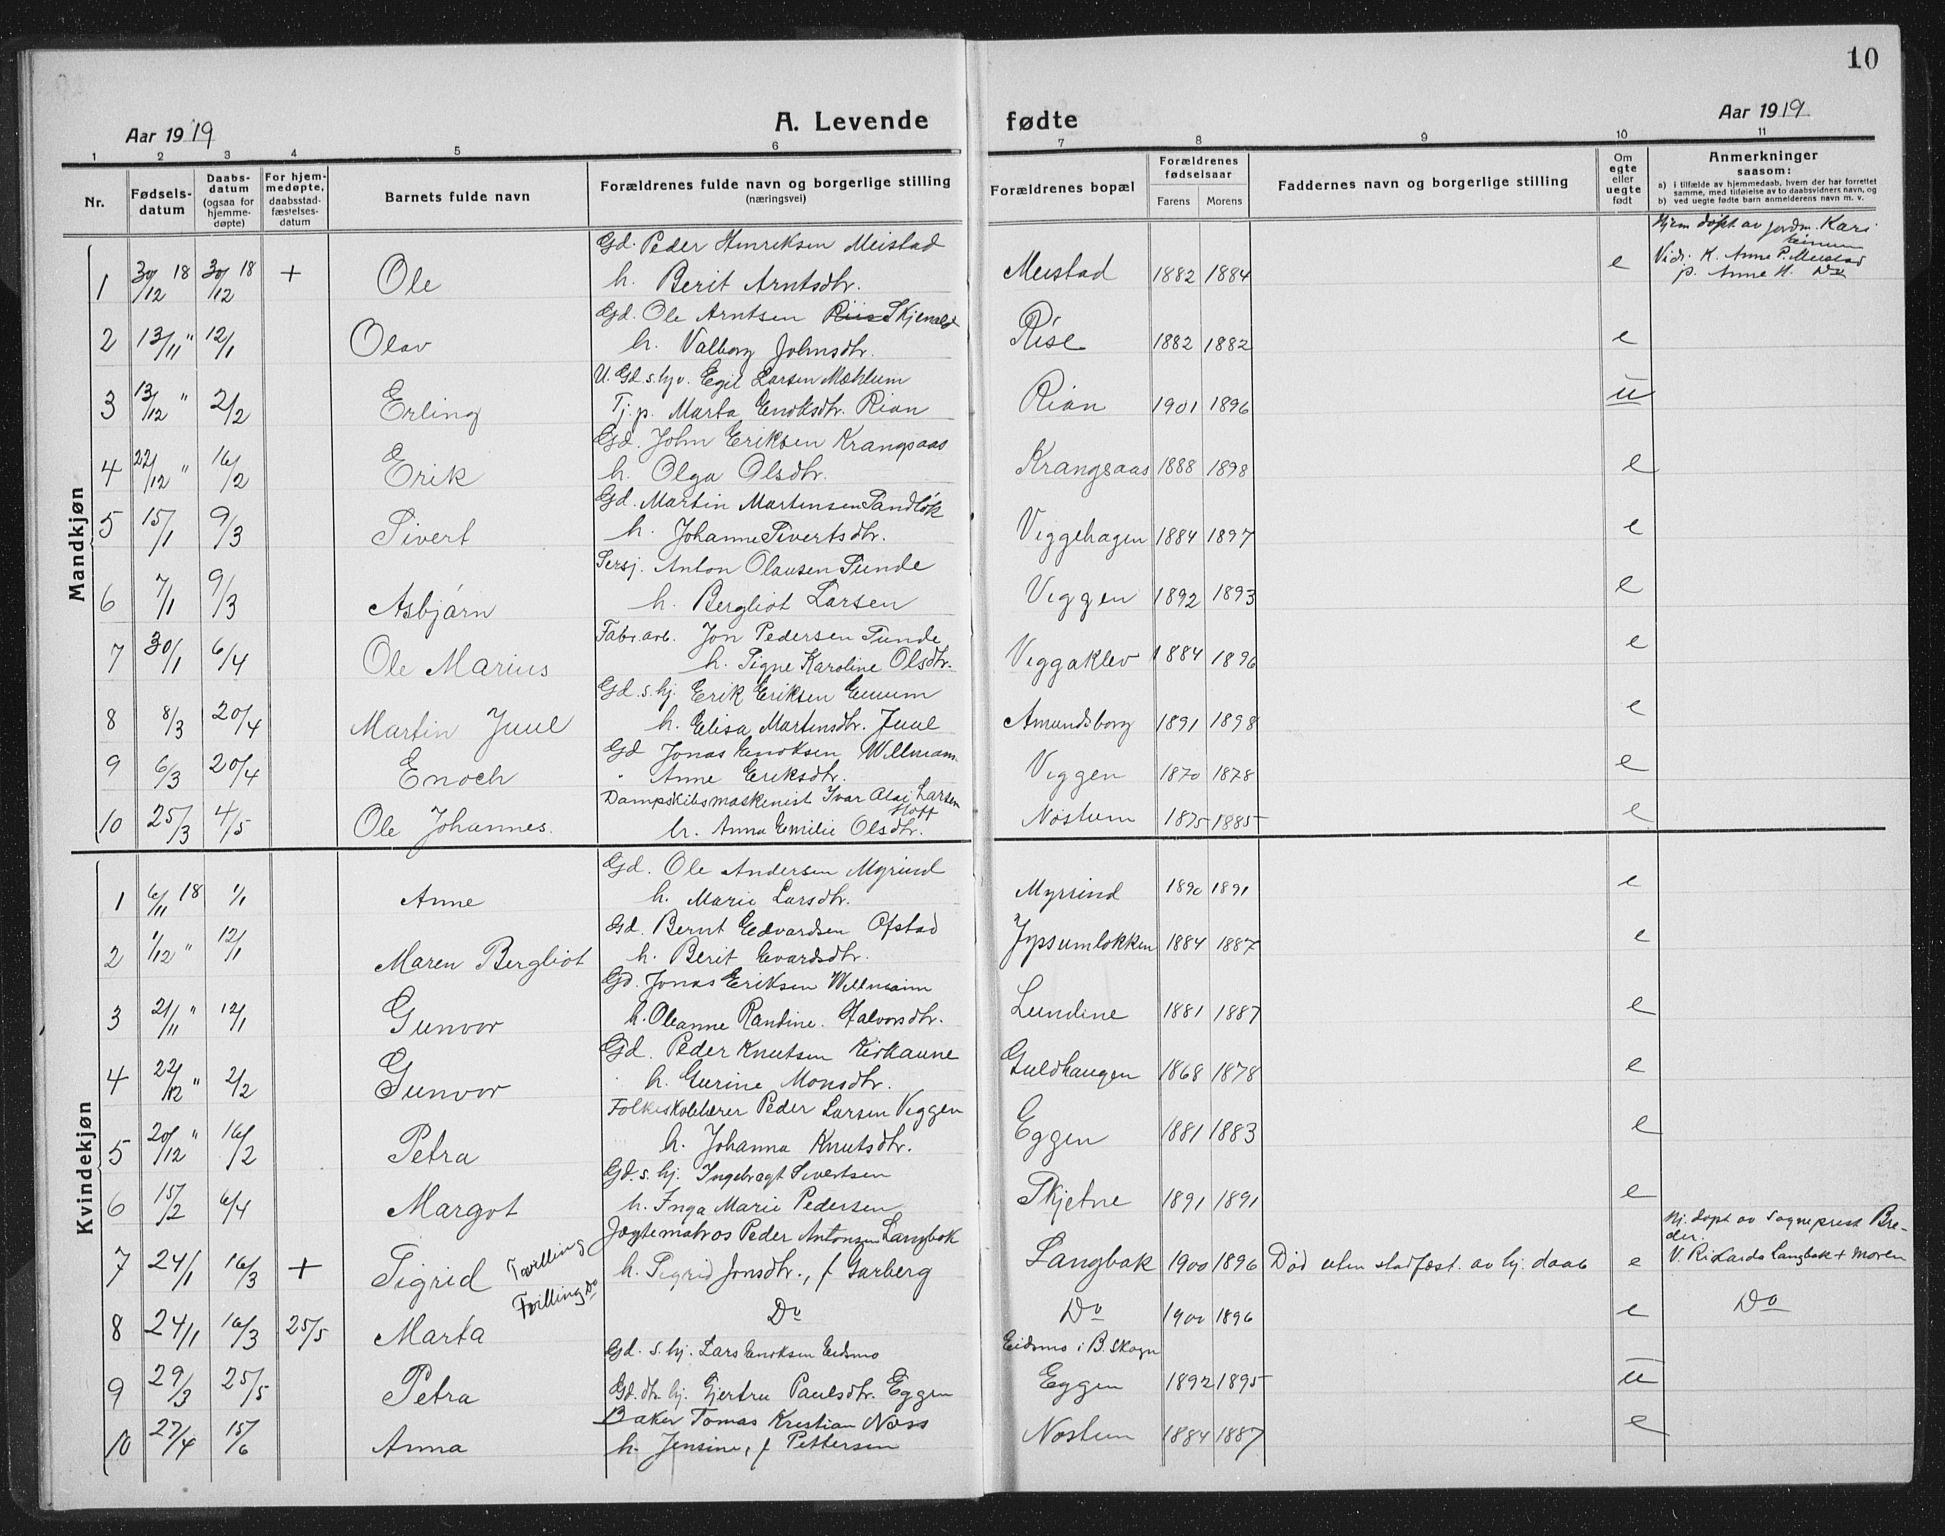 10
Aar 1919
A. Levende fødte
Aar 1919
1 2 3 4 5 6 7 8 9 10 11
Nr.
Fødsels-datum
Daabs-datum (ogsaa for hjemme-døpte)
For hjem-medøpte, daabsstad-fæstelses-datum
Barnets fulde navn
Forældrenes fulde navn og borgerlige stilling (næringsvei)
Forældrenes bopæl
Forældrenes fødselsaar
Farens Morens
Faddernes navn og borgerlige stilling
Om egte eller uegte født
Anmerkninger saasom:
a) i tilfælde av hjemmedaab, hvem der har forrettet samme, med tilføielse av to daabsvidners navn, og
b) ved uegte fødte barn anmelderens navn m. v.
Mandkjøn
Gd. Peder Henriksen Meistad Hjem døpt av jordm. Kari
1 30/12 18 30/12 18 + Ole h. Berit Arntsdtr. Meistad 1882 1884 e Vidr. K. Anne P. Meistad
p. Anne H. Do
Gd. Ole Arntsen Riise Skjenald
2 13/11 " 12/1 Olav h. Valborg Johnsdtr. Rise 1882 1882 e
U. Gd. s. hjv. Egil Larsen Mæhlum
3 13/12 " 2/2 Erling Tj. p. Marta Enoksdtr. Rian Rian 1901 1896 u
Gd. John Eriksen Krangsaas
4 22/12 " 16/2 Erik h. Olga Olsdtr. Krangsaas 1888 1898 e
Gd. Martin Martensen Sandløk
5 15/1 9/3 Sivert h. Johanne Sivertsdtr. Viggehagen 1884 1897 e
Sersj. Anton Olausen Sunde
6 7/1 9/3 Asbjørn h. Bergliot Larsen Viggen 1892 1893 e
Fabr. arb. Jon Pedersen Sunde
7 30/1 6/4 Ole Marius h. Signe Karoline Olsdtr. Viggaklev 1884 1896 e
Gd. s. hj. Erik Eriksen Einum
8 8/3 20/4 Martin Juul h. Elisa Martinsdtr. Juul Amundsborg 1891 1898 e
Gd Jonas Enoksen Willmann
9 6/3 20/4 Enoch " Anne Eriksdtr. Viggen 1870 1878 e
Dampskibsmaskenist Ivar Olai Larsen Hoff
10 25/3 4/5 Ole Johannes. h. Anna Emilie Olsdtr. Nostum 1875 1885 e
Kvindekjøn
Gd. Ole Andersen Myrsind
1 6/11 18 1/1 Anne h. Marie Larsdtr. Myrsind 1890 1891 e
Gd. Bernt Edvardsen Ofstad
2 1/12 " 12/1 Maren Bergliot h. Berit Evardsdtr. Jypsumløkken 1884 1887 e
Gd. Jonas Eriksen Willmann
3 21/11 " 12/1 Gunvor h. Oleanne Randine. Halvorsdtr. Lundine 1881 1887 e
Gd. Peder Knutsen Kirkaune
4 22/12 " 2/2 Gunvor h. Gurine Monsdtr. Guldhaugen 1868 1878 e
Folkeskolelærer Peder Larsen Viggen
5 20/12 " 16/2 Petra h. Johanna Knutsdtr. Eggen 1881 1883 e
Gd. s. hj. Ingebragt Sivertsen
6 15/2 6/4 Margot h. Inga Marie Pedersen Skjetne 1891 1891 e
Jægtematros Peder Antonsen Langbak Hj. døpt av Sogneprest Bre-
der.
7 24/1 16/3 + Sigrid Tvilling h. Sigrid Jonsdtr., f Garberg Langbak 1900 1896 Død uten stadfæst. av hj. daab e V. Rikarda Langbak + Moren
8 24/1 16/3 25/5 Marta Tvilling Do Do Do 1900 1896 e Do
Gd. s. hj. Lars Enoksen Eidsmo Eidsmo i B. skogn
9 29/3 25/5 Petra Gd. dtr. hj. Gjertru Paulsdtr. Eggen Eggen 1892 1895 u
Baker Tomas Kristian Næss
10 27/4 15/6 Anna h. Jensine, f Pettersen Nostum 1884 1887 e